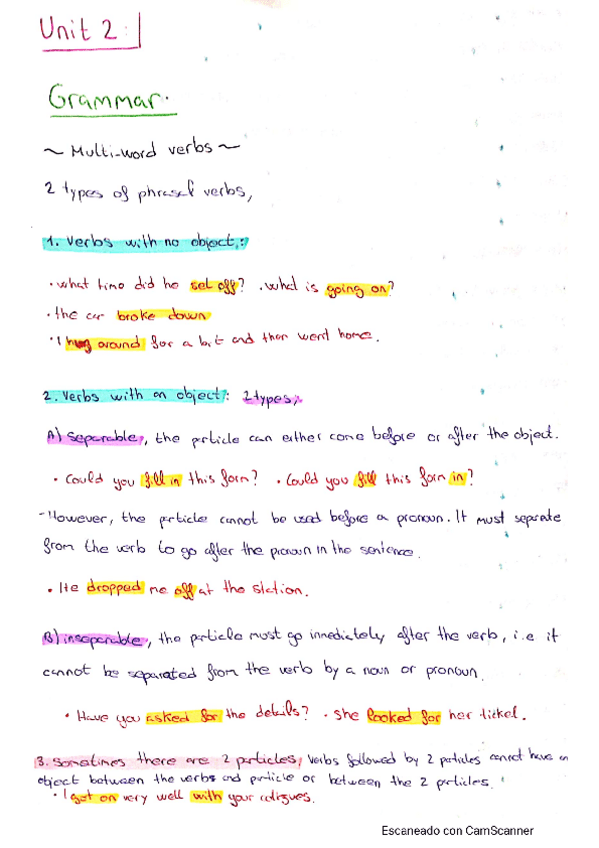 Unit 2:
Grammar.
~ Multi-word verbs ~
2 types of phrasal verbs,
1. Verbs with no object,:
· what time did he set off? . what is going on?
· the car broke down
· I hung around for a bit and then went home.
2. Verbs with an object: 2 types,
A) Separable, the particle can either come before or after the object.
· Could you fill in this form? · Could you fill this form in?
- However, the particle cannot be used before a pronoun. It must separate
from the verb to go after the pronoun in the sentence.
· He dropped me off at the station.
B) inseparable, the particle must go inmediately after the verb, i.e it
cannot be separated from the verb by a noun or pronoun.
· Have you asked for the details? · she looked for her ticket.
3. Sometimes there are 2 particles, verbs followed by 2 particles cannot have an
object between the verbs and particle or between the 2 particles.
· I get on very well with your
Escaneado con CamScanner